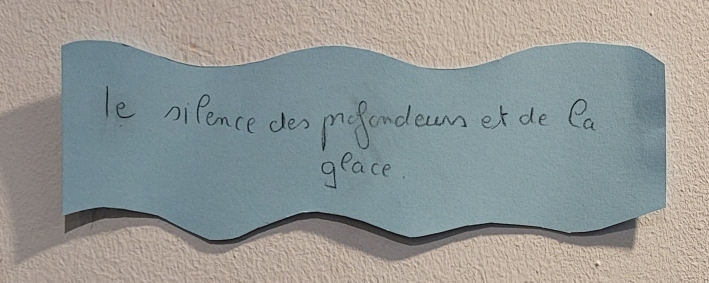 le silence des profondeurs et de la
glace.